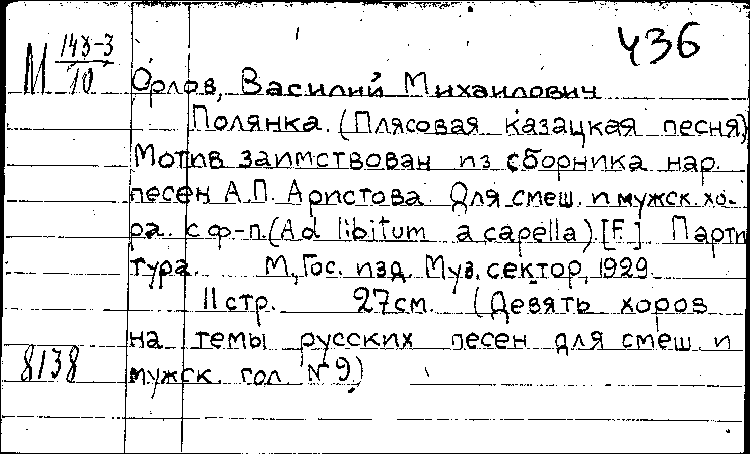 436
М 148-3/10
Орлов, Василий Михаилович
Полянка. (Плясовая казацкая песня)
Мотив заимствован из сборника нар.
песен А.П. Аристова. Для смеш. и мужск. хо-
ра. с ф-п. (Ad libitum a capella). [F.] Парти
тура. М, Гос. изд. Муз. сектор, 1929
11 стр. 27см. (Девять хоров
на темы русских песен для смеш. и
8138 мужск. гол. №9)